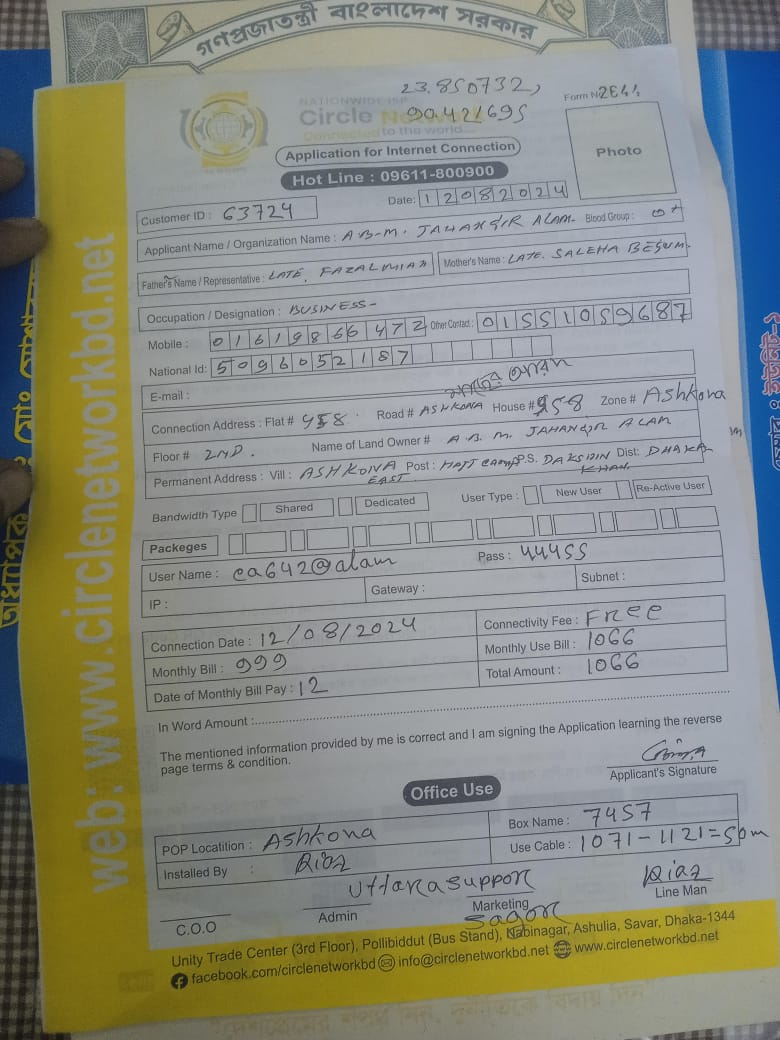 গণপ্রজাতন্ত্রী বাংলাদেশ সরকার
23.850732,
90.421695
Form N 2641
NATIONWIDE ISP
Circle Network
Connected to the world...
Application for Internet Connection
Photo
Hot Line : 09611-800900
Date: 12082024
Customer ID : 63724
Applicant Name / Organization Name : A B.M. JAHANGIR ALAM. Blood Group : O+
Father's Name / Representative : LATE. FAZAL MIAH Mother's Name : LATE. SALEHA BEGUM.
Occupation / Designation : BUSINESS-
Mobile : 01619866472 Other Contact : 01551059687
National Id: 5096052187
E-mail :
Connection Address : Flat # 458 Road # ASHKONA House # 958 Zone # Ashkona
Floor # 2ND. Name of Land Owner # A. B. M. JAHANGIR ALAM
Permanent Address : Vill : ASHKONA EAST Post : HAJI CAMP P.S. DAKSHIN KHAN Dist: DHAKA
Bandwidth Type Shared Dedicated User Type : New User Re-Active User
Packeges
User Name : ca642@alam Pass : 44455
IP : Gateway : Subnet :
Connection Date : 12/08/2024 Connectivity Fee : FREE
Monthly Bill : 999 Monthly Use Bill : 1066
Date of Monthly Bill Pay : 12 Total Amount : 1066
In Word Amount :
The mentioned information provided by me is correct and I am signing the Application learning the reverse
page terms & condition.
Applicant's Signature
Office Use
POP Locatition : Ashkona Box Name : 7457
Installed By : Riaz Use Cable : 1071-1121=50m
Uttara support Riaz
C.O.O Admin Marketing Line Man
Sagor
Unity Trade Center (3rd Floor), Pollibiddut (Bus Stand), Nabinagar, Ashulia, Savar, Dhaka-1344
facebook.com/circlenetworkbd info@circlenetworkbd.net www.circlenetworkbd.net
web: www.circlenetworkbd.net
অধ্যাপক